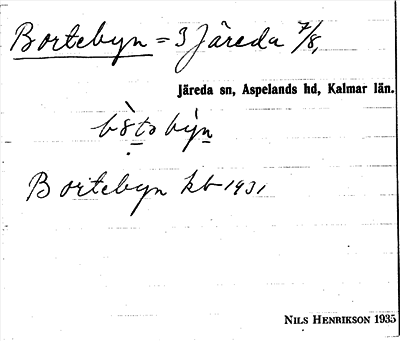 Bortebyn = 3 Järeda 7/8,
Järeda sn, Aspelands hd, Kalmar län.
Bortebyn kb 1931
NILS HENRIKSON 1935